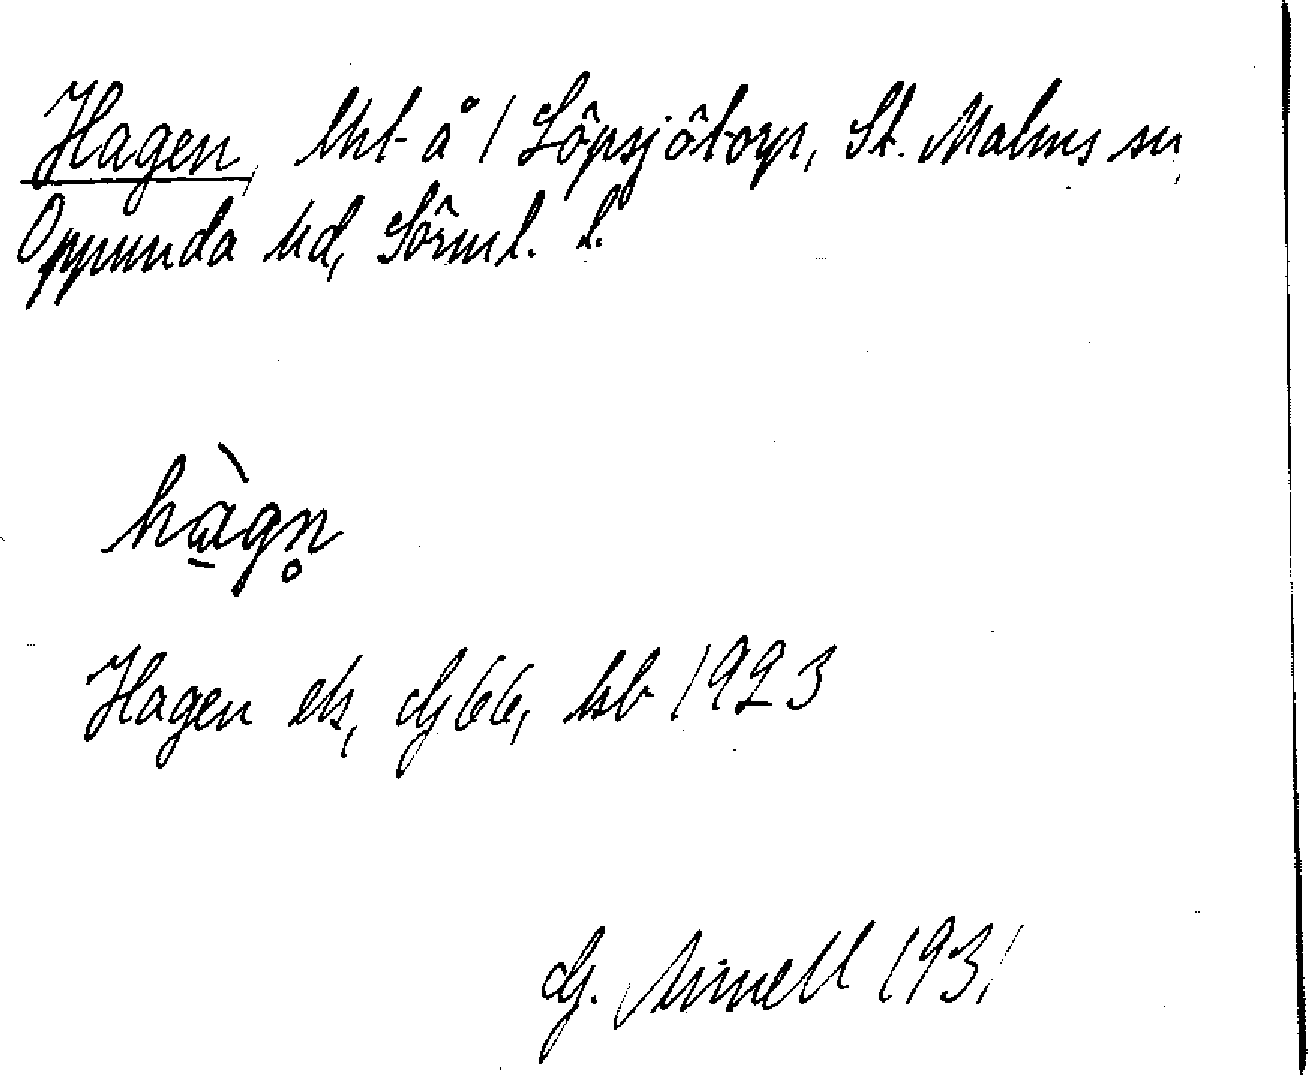 Hagen, lht å 1 Löpsjötorp, St. Malms sn,
Oppunda hd, Sörml. l.
hàgn̥
Hagen ek, G66, hb 1923
G. 1931